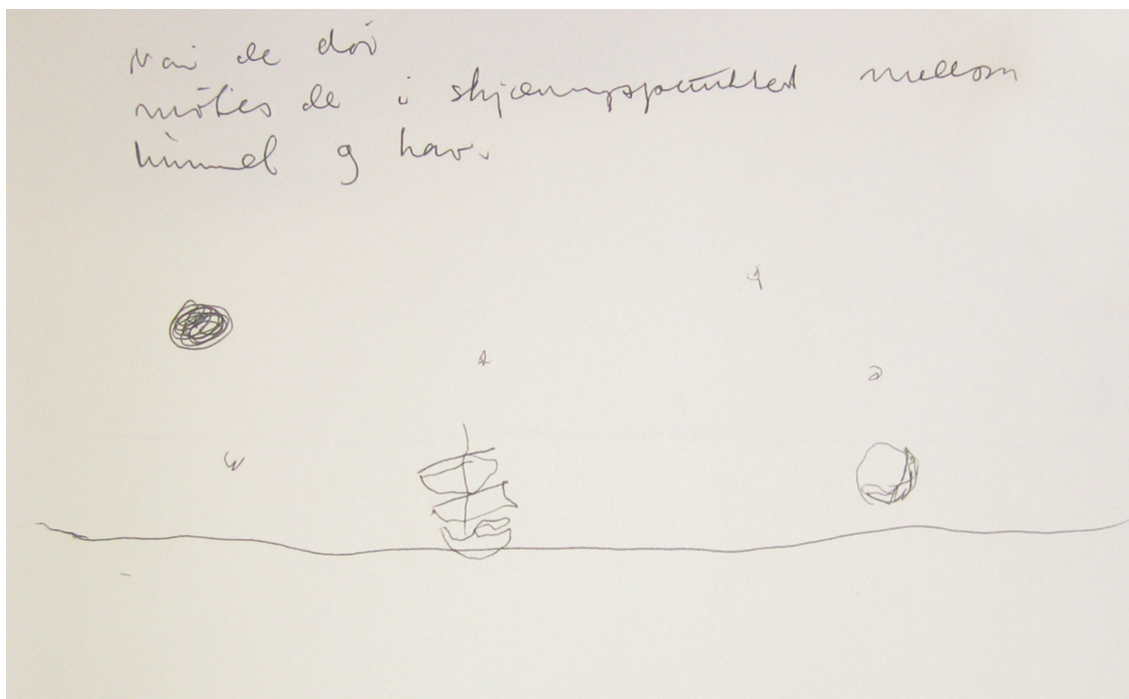 Når de dør
møtes de i skjæringspunktet mellom
himmel og hav.